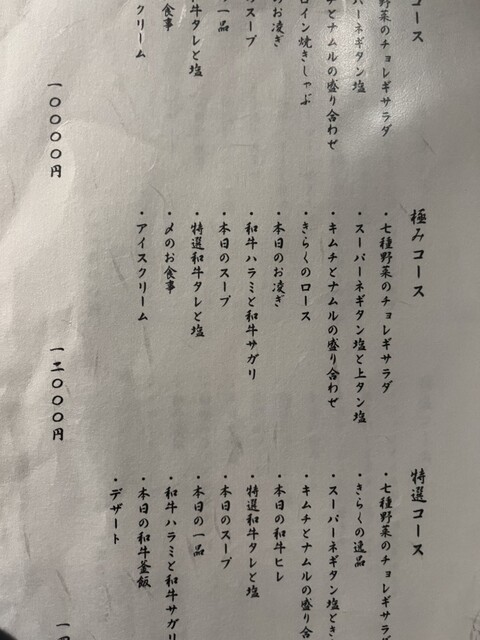 コース
野菜のチョレギサラダ
パーネギタン塩
チとナムルの盛り合わせ
ロイン焼きしゃぶ
のお凌ぎ
のスープ
一品
牛タレと塩
お食事
クリーム
一〇〇〇〇円
極みコース
・七種野菜のチョレギサラダ
・スーパーネギタン塩と上タン塩
・キムチとナムルの盛り合わせ
・きらくのロース
・本日のお凌ぎ
・和牛ハラミと和牛サガリ
・本日のスープ
・特選和牛タレと塩
・〆のお食事
・アイスクリーム
一二〇〇〇円
特選コース
・七種野菜のチョレギサラダ
・きらくの逸品
・スーパーネギタン塩とき
・キムチとナムルの盛り合
・本日の和牛ヒレ
・特選和牛タレと塩
・本日のスープ
・本日の一品
・和牛ハラミと和牛サガリ
・本日の和牛釜飯
・デザート